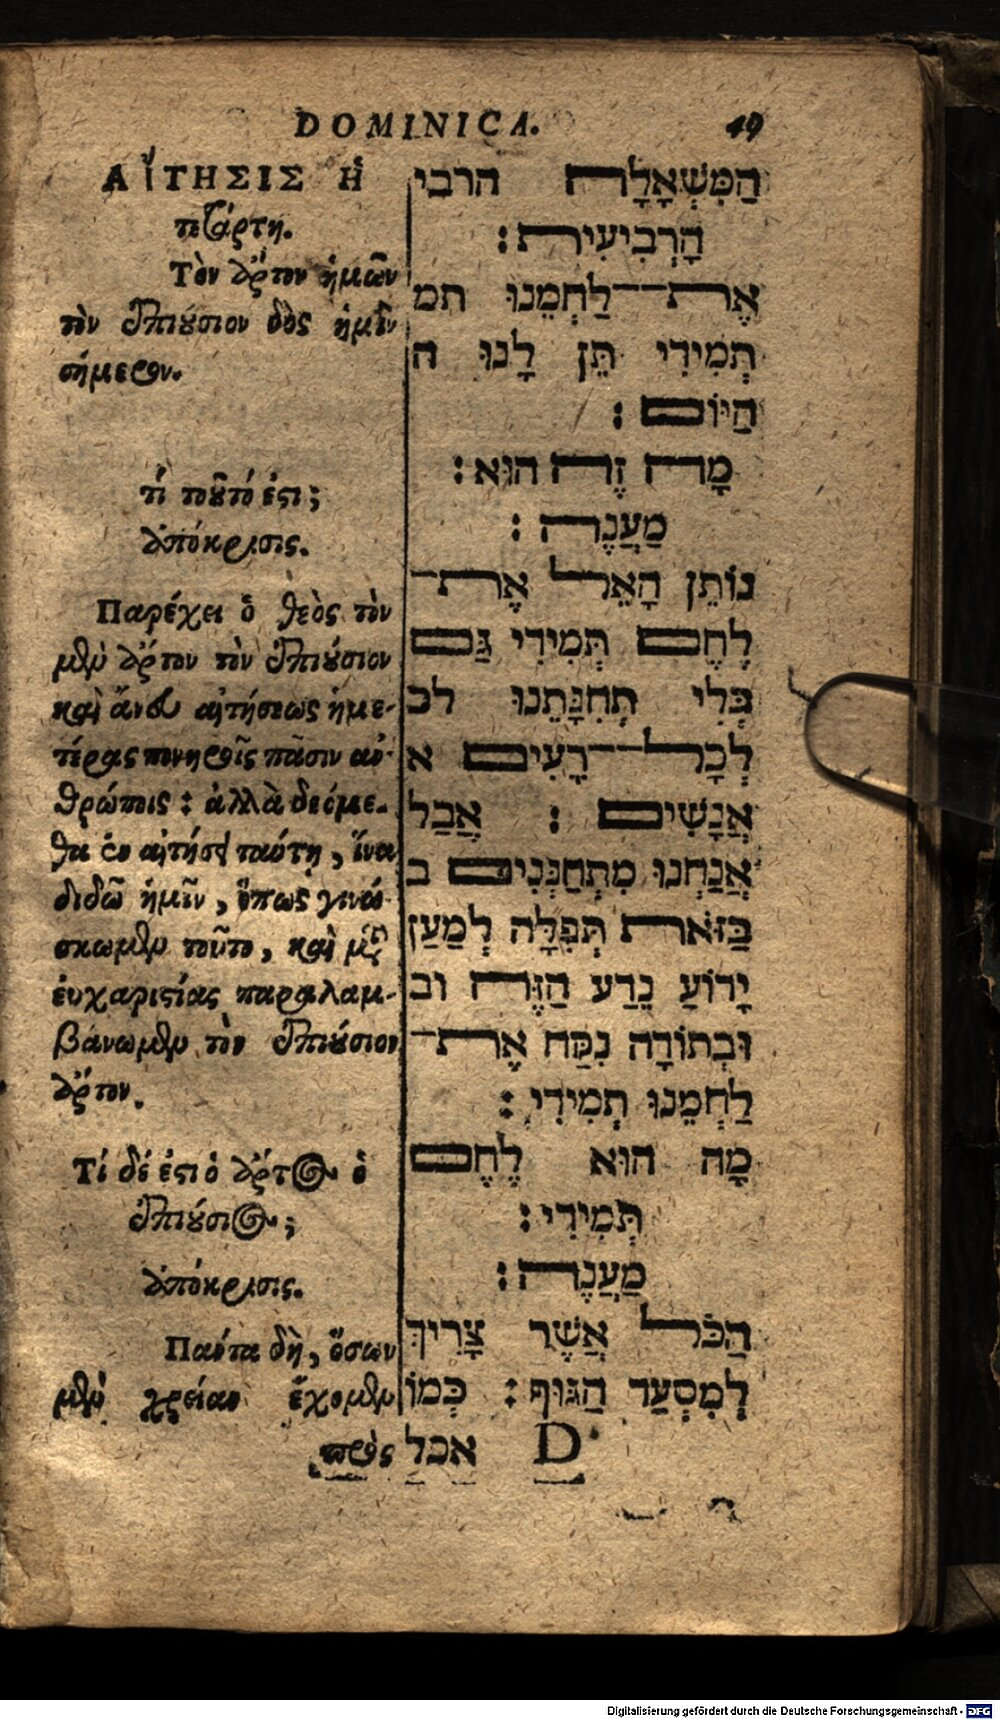 DOMINICA. 49
ΑἼΤΗΣΙΣ Ἡ
τετάρτη.
Τὸν ἄρτον ἡμῶν
τὸν ἐπιούσιον δὸς ἡμῖν
σήμερον.
τί τοῦτό ἐστι;
ἀπόκρισις.
Παρέχει ὁ θεὸς τὸν
μὲν ἄρτον τὸν ἐπιούσιον
καὶ ἄνευ αἰτήσεως ἡμε-
τέρας πονηροῖς πᾶσιν ἀν-
θρώποις: ἀλλὰ δεόμε-
θα ἐν αἰτήσει ταύτῃ, ἵνα
διδῶ ἡμῖν, ὅπως γινώ-
σκωμεν τοῦτο, καὶ μετ᾽
ἐυχαριστίας παραλαμ-
βάνωμεν τὸν ἐπιούσιον
ἄρτον.
Τί δέ ἐστι ὁ ἄρτος ὁ
ἐπιούσιος;
ἀπόκρισις.
Πάντα δὴ, ὅσων
μὲν χρείαν ἔχομεν
πρὸς
הַמִּשְׁאָלָה הרבי
הָרְבִיעִית:
אֶת־לַחְמֵנוּ תמ
תְמִידִי תֵּן לָנוּ ה
הַיּוֹם:
מָה זֶה הוּא:
מַעֲנֶה:
נוֹתֵן הָאֵל אֶת־
לֶחֶם תְּמִידִי גַּם
בְּלִי תְחִנָּתֵנוּ לכ
לְכָל־רָעִים א
אֲנָשִׁים: אֲבַל
אֲנַחְנוּ מִתְחַנְּנִים ב
בַּזֹּאת תְּפִלָּה לְמַעַן
יָדוֹעַ נֵדַע הַזֶּה וב
וּבְתוֹרָה נִקַּח אֶת־
לַחְמֵנוּ תְמִידִי:
מָה הוּא לֶחֶם
תְּמִידִי:
מַעֲנֶה:
הַכֹּל אֲשֶׁר צָרִיךְ
לְמִסְעַד הַגּוּף: כְּמוֹ
אכל D